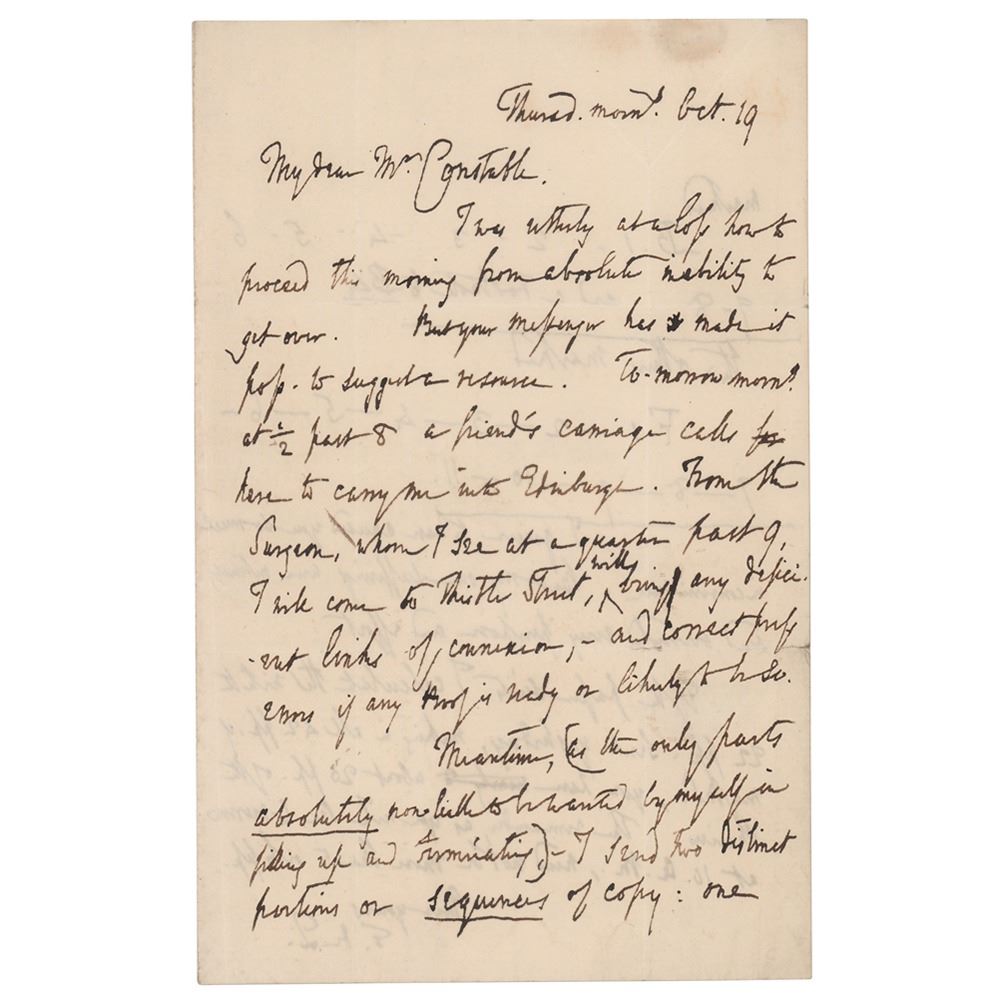 Thursd. morng. Oct. 19
My dear Mr. Constable.
I was utterly at a loss how to
proceed this morning from absolute inability to
get over. But your messenger has made it
poss. to suggest a resource. To-morrow morng.
at ½ past 8 a friend's carriage calls for
here to carry me into Edinburgh. From the
Surgeon, whom I see at a quarter past 9,
I will come to Thistle Street, will bring any defici-
-ent links of connexion, – and correct press
errors if any Proof is ready or likely to be so.
Meantime, (as the only parts
absolutely to be wanted by myself in
filling up and terminating) – I send two distinct
portions or sequences of copy : one